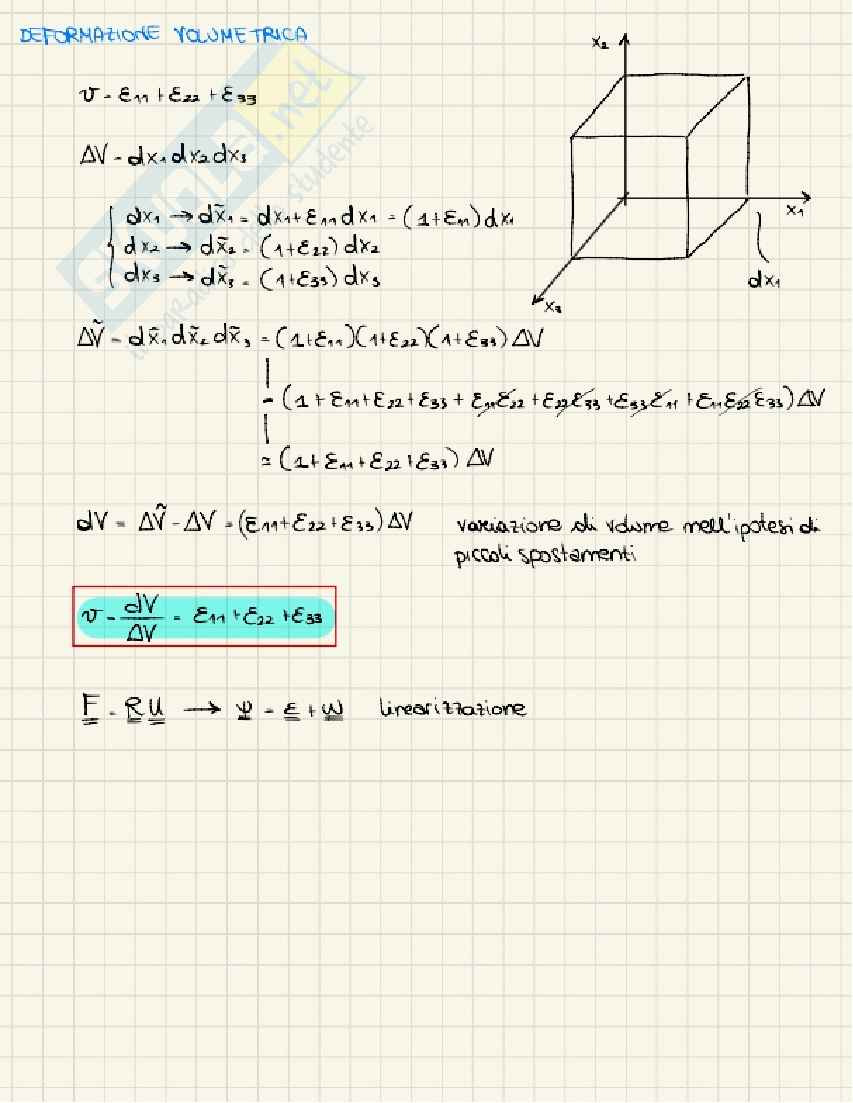 DEFORMAZIONE VOLUMETRICA
v = ε₁₁ + ε₂₂ + ε₃₃
ΔV = dx₁ dx₂ dx₃
dx₁ → dx̃₁ = dx₁ + ε₁₁ dx₁ = (1+ε₁₁) dx₁
dx₂ → dx̃₂ = (1+ε₂₂) dx₂
dx₃ → dx̃₃ = (1+ε₃₃) dx₃
ΔṼ = dx̃₁ dx̃₂ dx̃₃ = (1+ε₁₁)(1+ε₂₂)(1+ε₃₃) ΔV
= (1 + ε₁₁ + ε₂₂ + ε₃₃ + ε₁₁ε₂₂ + ε₂₂ε₃₃ + ε₃₃ε₁₁ + ε₁₁ε₂₂ε₃₃) ΔV
= (1 + ε₁₁ + ε₂₂ + ε₃₃) ΔV
dV = ΔṼ - ΔV = (ε₁₁+ε₂₂+ε₃₃) ΔV variazione di volume nell'ipotesi di
piccoli spostamenti
v = dV/ΔV = ε₁₁ + ε₂₂ + ε₃₃
F = R U → ψ = ε + ω linearizzazione
x₂
x₁
x₃
dx₁